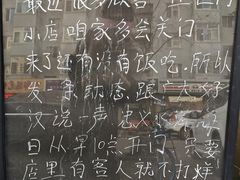 最近很多
小店咱家多会关门
来了还有没有饭吃.所以
发条动态跟广大好
汉说一声
日从早10点开门只要
店里有客人就不打烊